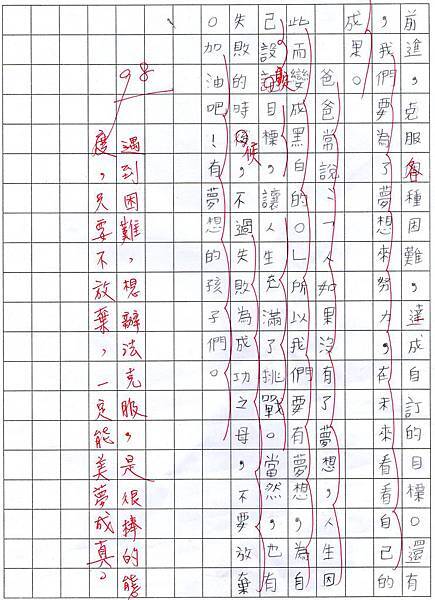 前進，克服各種困難，達成自訂的目標。還有
，我們要為了夢想來努力，在未來看看自己的
成果。
爸爸常說：「人如果沒有了夢想，人生因
此而變成黑白的。」所以我們要有夢想，為自
己設目標，讓人生充滿了挑戰。當然，也有
失敗的時候，不過失敗為成功之母，不要放棄
。加油吧！有夢想的孩子們。
98
遇到困難，想辦法克服，是很棒的態
度，只要不放棄，一定能美夢成真。